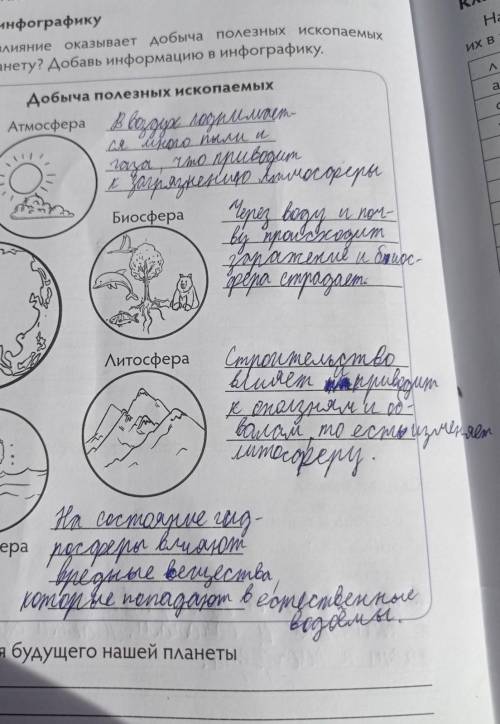 инфографику
влияние оказывает добыча полезных ископаемых
анету? Добавь информацию в инфографику.
Добыча полезных ископаемых
Атмосфера
В воздух поднимает-
ся много пыли и
газа, что приводит
к загрязнению атмосферы
Биосфера
Через воду и поч-
ву происходит
заражение и биос-
фера страдает.
Литосфера
Строительство
влияет и приводит
к оползням и об-
валам, то есть изменяет
литосферу.
ера
На состояние гид-
росферы влияют
вредные вещества,
которые попадают в естественные
водоёмы.
я будущего нашей планеты
На
их в